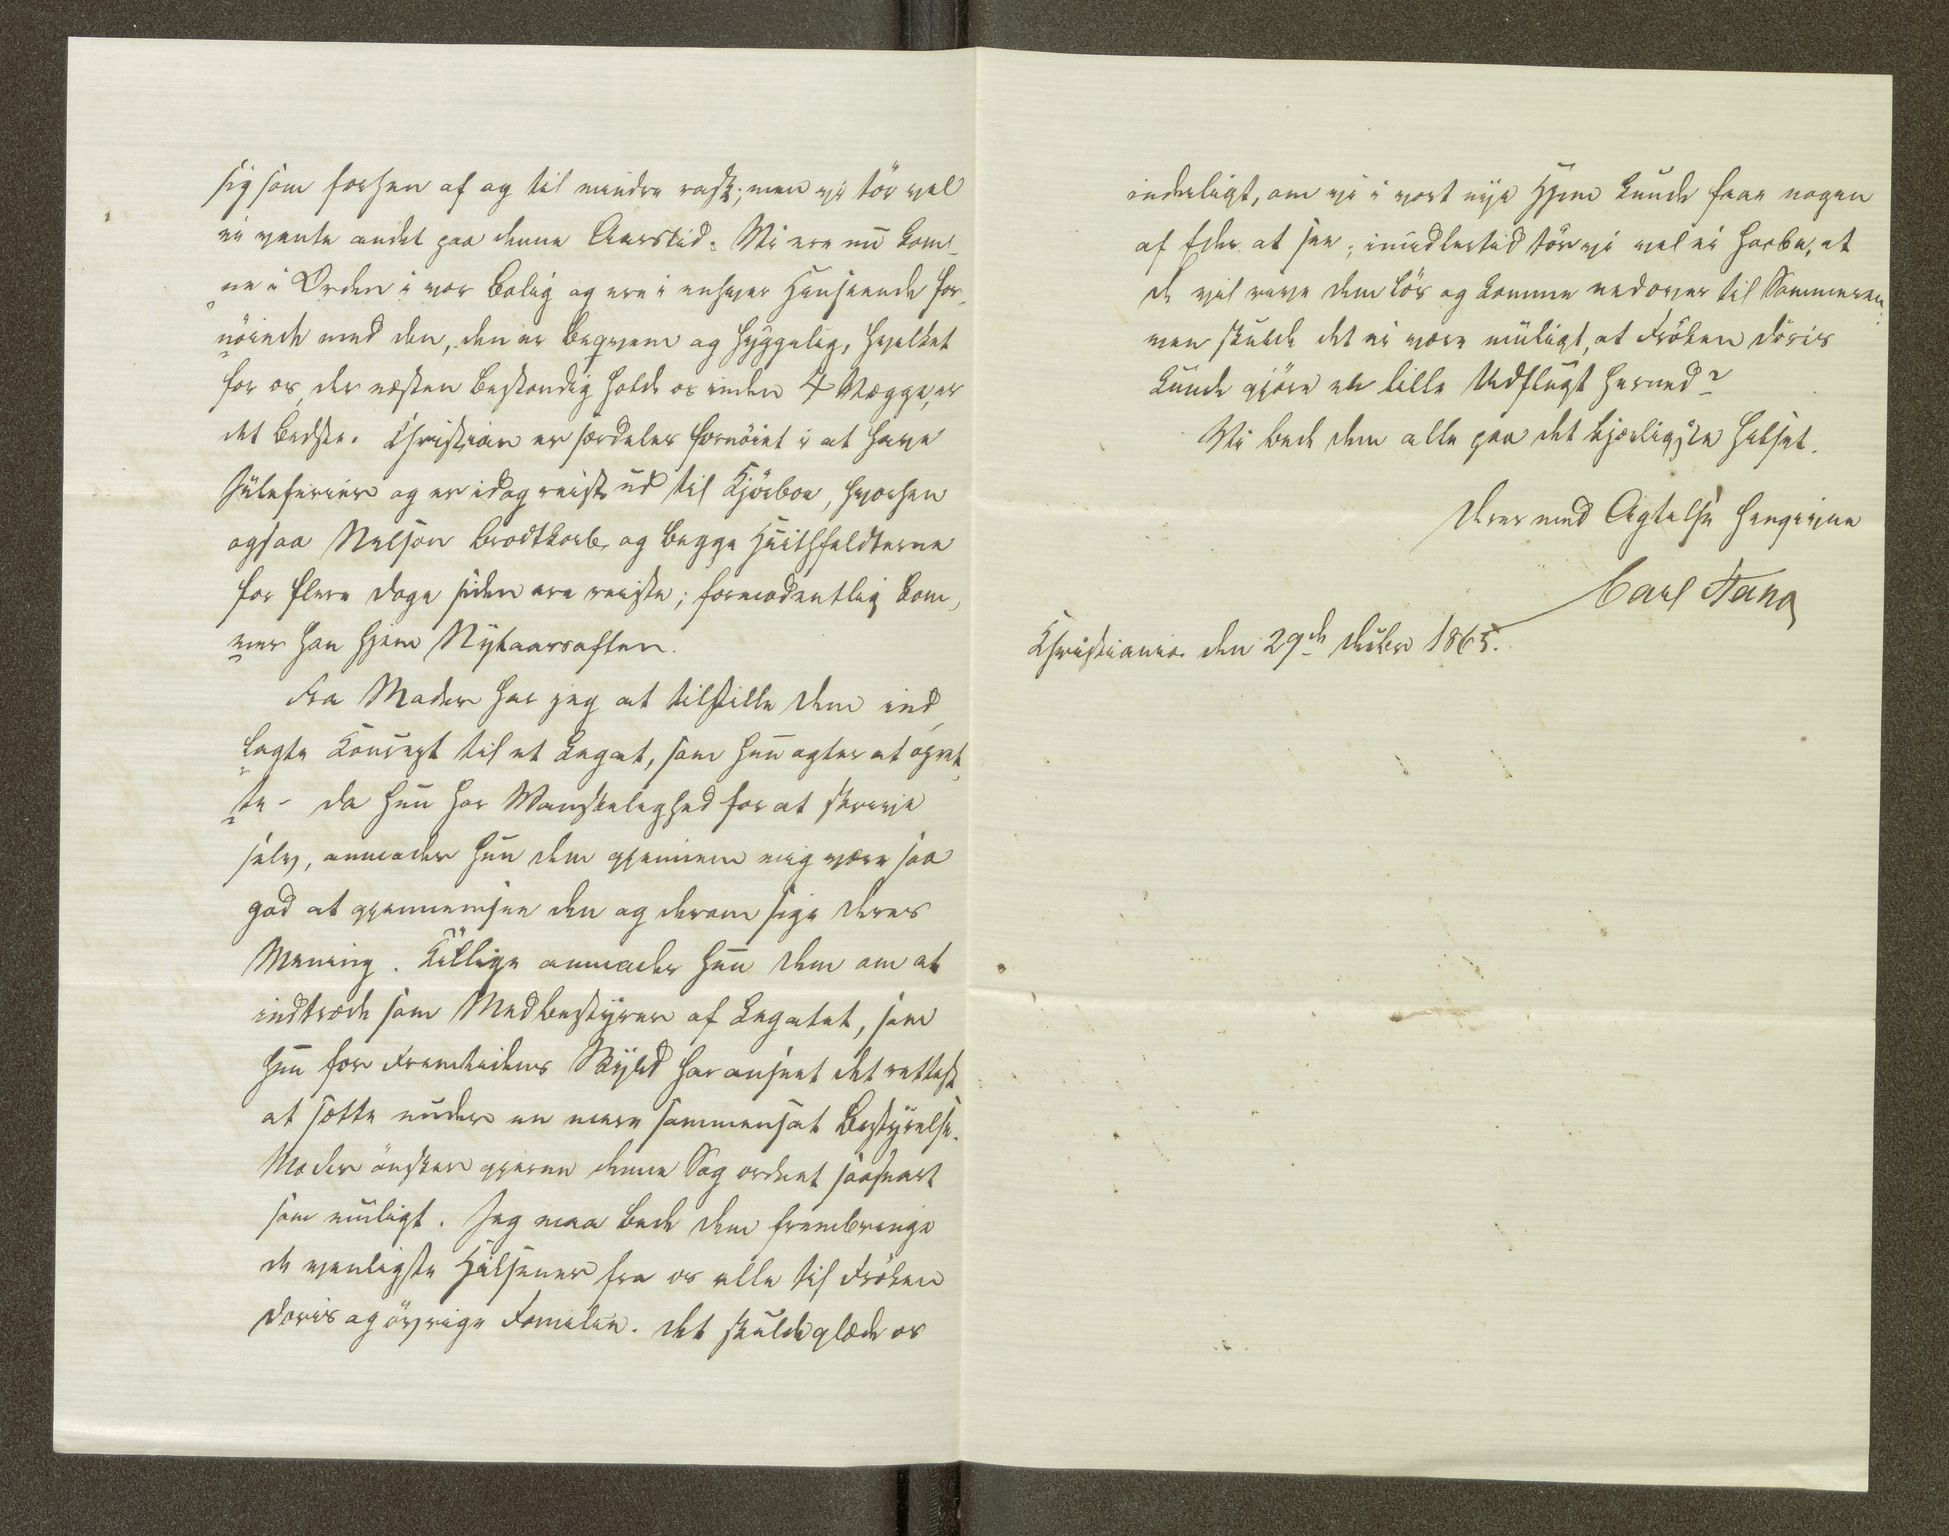 sig som forhen af og til mindre rask; men vi tör vel
ei vente andet paa denne Aarstid. Vi ere nu kom-
ne i Orden i vor Bolig og ere i enhver Henseende for-
nöiede med den, den er beqvem og hyggelig, hvilket
for os, der næsten bestandig holde os inden 4 Vægge, er
det bedste. Christian er særdeles fornöiet i at have
Juleferier og er idag reist ud til Kjörboe, hvorhen
ogsaa Nelson Brodtkorb og begge Huithfeldterne
for flere Dage siden ere reiste; formodentlig kom-
mer han hjem Nytaarsaften.
Fra Moder har jeg at tilstille Dem ind-
lagte Koncept til et Legat, som hun agter at opret-
te - da hun har Vanskelighed for at skrive
selv, anmoder hun Dem gjennem mig være saa
god at gjennemsee den og derom sige Deres
Mening. Tillige anmoder hun Dem om at
indtræde som Medbestyrer af Legatet, som
hun for Fremtidens Skyld har anseet det rettest
at sætte under en mere sammensat Bestyrelse.
Moder önsker gjerne denne Sag ordnet saasnart
som muligt. Jeg maa bede Dem frembringe
de venligste Hilsener fra os alle til Fröken
Doris og övrige Familie. Det skulde glæde os
inderligt, om vi i vort nye Hjem kunde faae nogen
af Eder at see; imidlertid tör vi vel ei haabe, at
De vil rive Dem lös og komme nedover til Sommeren;
men skulde det ei være muligt, at Fröken Doris
kunde gjöre en lille Udflugt herned?
Vi bede Dem alle paa det kjærligste hilset.
Deres med Agtelse hengivne
Carl Stang
Christiania den 29de Decbr 1865.